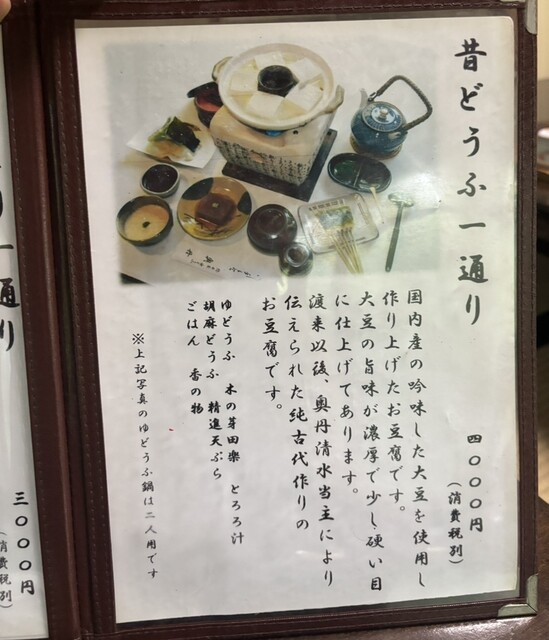 昔どうふ一通り
四〇〇〇円
(消費税別)
国内産の吟味した大豆を使用し
作り上げたお豆腐です。
大豆の旨味が濃厚で少し硬い目
に仕上げてあります。
渡来以後、奥丹清水当主により
伝えられた純古代作りの
お豆腐です。
ゆどうふ 木の芽田楽 とろろ汁
胡麻どうふ 精進天ぷら
ごはん 香の物
※上記写真のゆどうふ鍋は二人用です
一通り
三〇〇〇円
(消費税別)